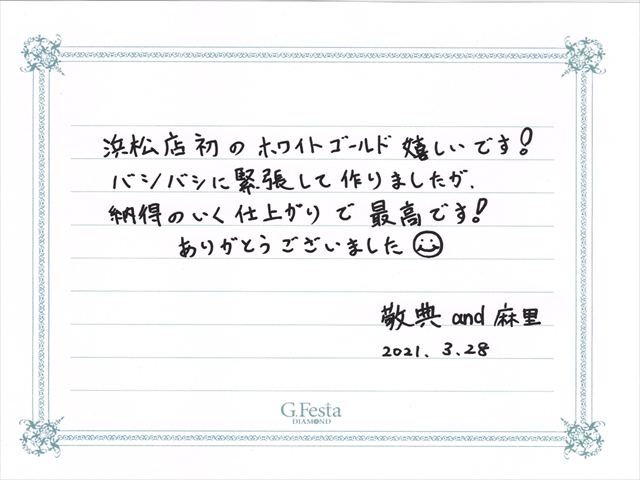 浜松店初のホワイトゴールド嬉しいです!
バシバシに緊張して作りましたが、
納得のいく仕上がりで最高です!
ありがとうございました
敬典 and 麻里
2021. 3. 28
G.Festa
DIAMOND